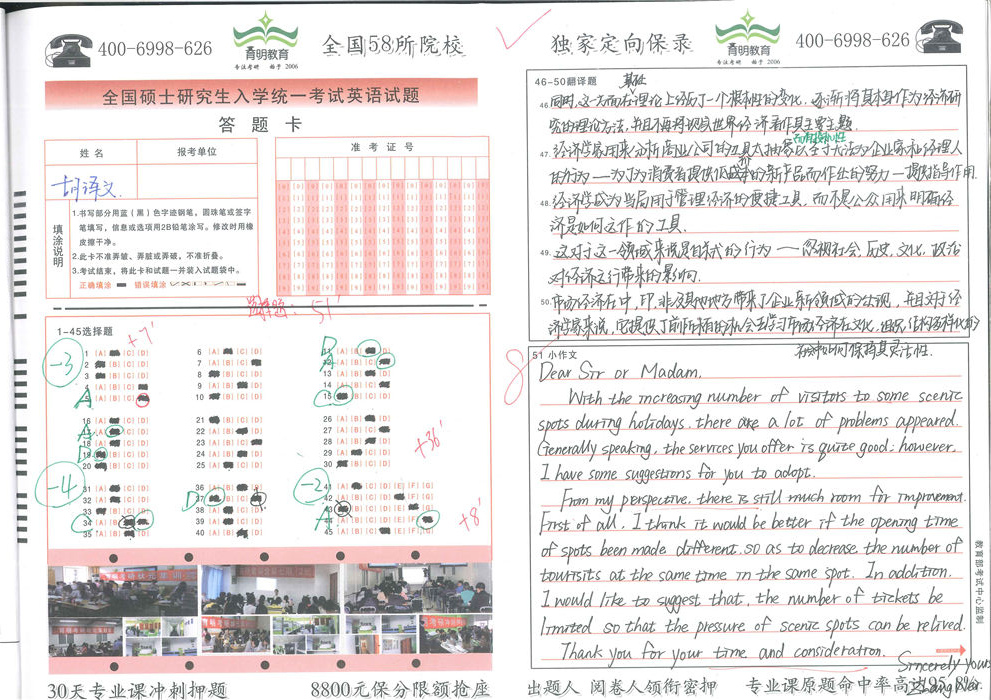 400-6998-626
育明教育
专注考研 始于 2006
全国58所院校
全国硕士研究生入学统一考试英语试题
答 题 卡
姓 名
报考单位
准 考 证 号
胡译文.
填涂说明
1.书写部分用蓝(黑)色字迹钢笔,圆珠笔或签字
笔填写,信息或选项用2B铅笔涂写。修改时用橡
皮擦干净。
2.此卡不准弄皱、弄脏或弄破,不准折叠。
3.考试结束,将此卡和试题一并装入试题袋中。
正确填涂 错误填涂
选择题: 51'
1-45选择题
+7'
-3
+36'
-4
-2
+8'
30天专业课冲刺押题
8800元保分限额抢座
独家定向保录
育明教育
专注考研 始于 2006
400-6998-626
46-50翻译题
46.同时,这一方面在理论上经历了一个根本性的变化,逐渐将其本身作为经济研
究的理论方法,并且不再将认识世界经济看作其主要主题.
47.经济学家用来分析商业公司的工具太抽象以至于无法为企业家和经理人
的行为——为了为消费者提供的新产品而作出的努力——提供指导作用.
48.经济学成为当局用于管理经济的便捷工具,而不是公众用来明确经
济是如何运作的工具.
49.这对于这一领域来说是自杀式的行为——忽视社会,历史,文化,政治
对经济运行带来的影响.
50.市场经济在中,印,非及其他地方带来了企业新领域的出现,并且对于经
济学家来说,它提供了前所未有的机会去学习市场经济在文化,组织,结构多样化的
社会中如何保持其灵活性.
8
51 小作文
Dear Sir or Madam,
With the increasing number of visitors to some scenic
spots during holidays, there are a lot of problems appeared.
Generally speaking, the services you offer is quite good; however,
I have some suggestions for you to adopt.
From my perspective, there is still much room for improvement.
First of all, I think it would be better if the opening time
of spots been made different so as to decrease the number of
tourisits at the same time in the same spot. In addition,
I would like to suggest that, the number of tickets be
limited so that the pressure of scenic spots can be relived.
Thank you for your time and consideration.
Sincerely yours
教育部考试中心监制
出题人 阅卷人领衔密押
专业课原题命中率高达95.8分